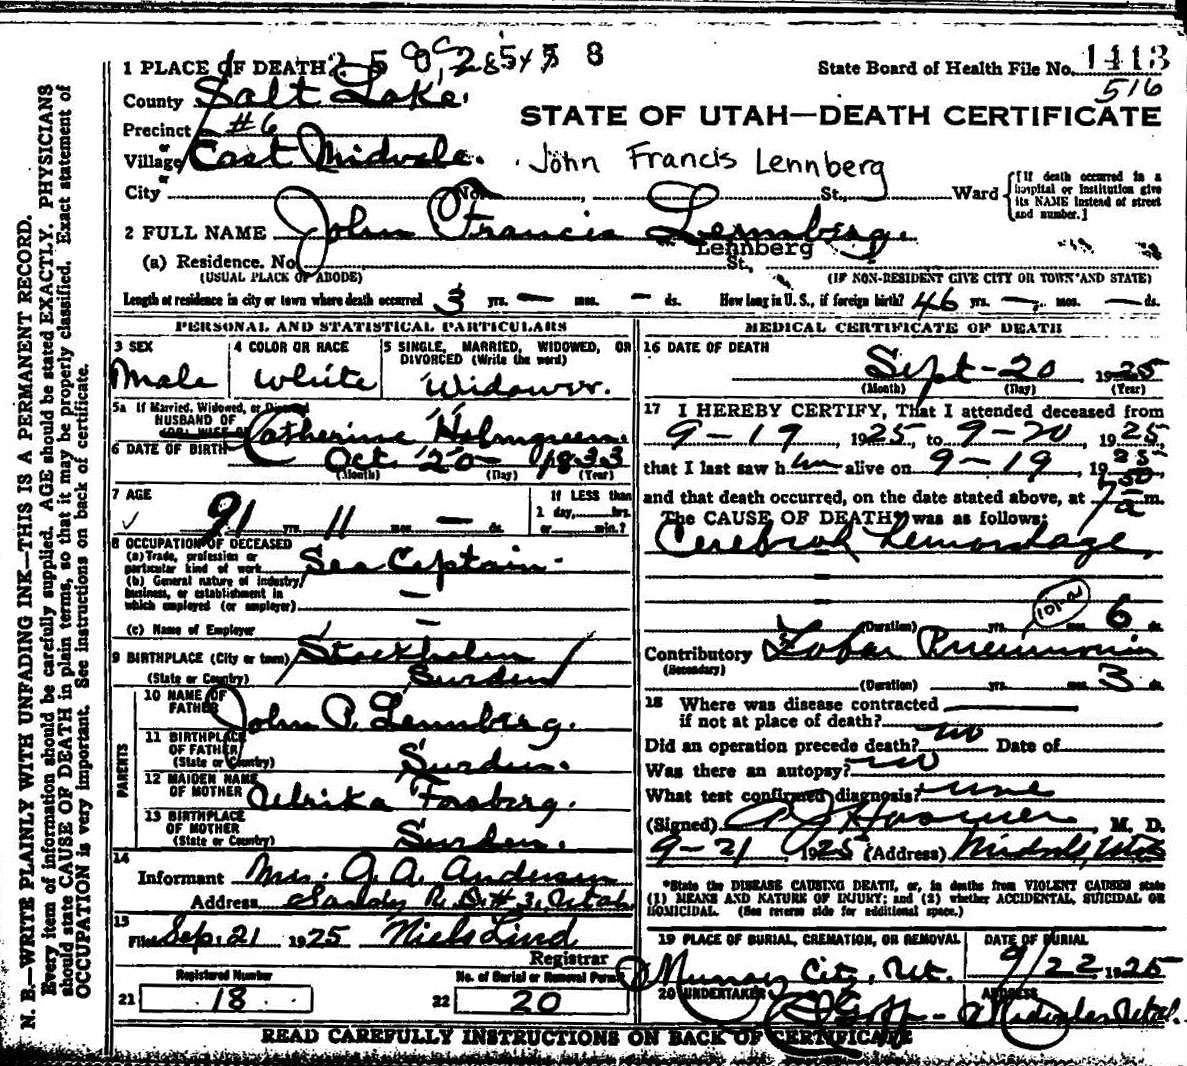 1 PLACE OF DEATH
State Board of Health File No. 1413
516
County Salt Lake.
STATE OF UTAH—DEATH CERTIFICATE
Precinct #6
or
Village East Midvale.
John Francis Lennberg
or
City No. , St., Ward
[If death occurred in a hospital or institution give its NAME instead of street and number.]
2 FULL NAME John Francis Lennberg.
Lennberg
(a) Residence. No. St.,
(USUAL PLACE OF ABODE) (IF NON-RESIDENT GIVE CITY OR TOWN AND STATE)
Length of residence in city or town where death occurred 3 yrs. — mos. — ds. How long in U. S., if foreign birth? 46 yrs. — mos. — ds.
PERSONAL AND STATISTICAL PARTICULARS
3 SEX
Male
4 COLOR OR RACE
White
5 SINGLE, MARRIED, WIDOWED, OR DIVORCED (Write the word)
Widower.
5a If Married, Widowed, or Divorced
HUSBAND OF
(OR) WIFE OF
Catherine Holmgreen.
6 DATE OF BIRTH Oct 20 — 1833
(Month) (Day) (Year)
7 AGE
91 yrs. 11 mos. — ds.
If LESS than
1 day, hrs.
or min.?
8 OCCUPATION OF DECEASED
(a) Trade, profession or
particular kind of work Sea Captain.
(b) General nature of industry,
business, or establishment in
which employed (or employer) —
(c) Name of Employer —
9 BIRTHPLACE (City or town) Stockholm
(State or Country) Sweden
PARENTS
10 NAME OF
FATHER John P. Lennberg.
11 BIRTHPLACE
OF FATHER
(State or Country) Sweden.
12 MAIDEN NAME
OF MOTHER Ulrika Forsberg.
13 BIRTHPLACE
OF MOTHER
(State or Country) Sweden.
14
Informant Mrs. A. A. Anderson
Address Sandy R. D. # 3, Utah.
15
Filed Sep. 21 1925 Niels Lind
Registrar
Registered Number
21 18
No. of Burial or Removal Permit
22 20
MEDICAL CERTIFICATE OF DEATH
16 DATE OF DEATH
Sept - 20 1925
(Month) (Day) (Year)
17 I HEREBY CERTIFY, That I attended deceased from
9-19, 1925, to 9-20, 1925,
that I last saw him alive on 9-19, 1925
and that death occurred, on the date stated above, at 7 50 a m.
The CAUSE OF DEATH* was as follows:
Cerebral Hemorrhage,
(Duration) yrs. mos. 6 ds.
Contributory Lobar Pneumonia
(Secondary)
(Duration) yrs. mos. 3 ds.
18 Where was disease contracted
if not at place of death?
Did an operation precede death? no Date of
Was there an autopsy? no
What test confirmed diagnosis? none
(Signed) M. D.
9-21 1925 (Address) Midvale, Utah
*State the DISEASE CAUSING DEATH, or, in deaths from VIOLENT CAUSES state
(1) MEANS AND NATURE OF INJURY; and (2) whether ACCIDENTAL, SUICIDAL OR
HOMICIDAL. (See reverse side for additional space.)
19 PLACE OF BURIAL, CREMATION, OR REMOVAL
Murray City, Ut.
DATE OF BURIAL
9/22 1925
20 UNDERTAKER Goff
ADDRESS Midvale Utah.
READ CAREFULLY INSTRUCTIONS ON BACK OF CERTIFICATE
N. B.—WRITE PLAINLY WITH UNFADING INK—THIS IS A PERMANENT RECORD.
Every item of information should be carefully supplied. AGE should be stated EXACTLY. PHYSICIANS
should state CAUSE OF DEATH in plain terms, so that it may be properly classified. Exact statement of
OCCUPATION is very important. See instructions on back of certificate.